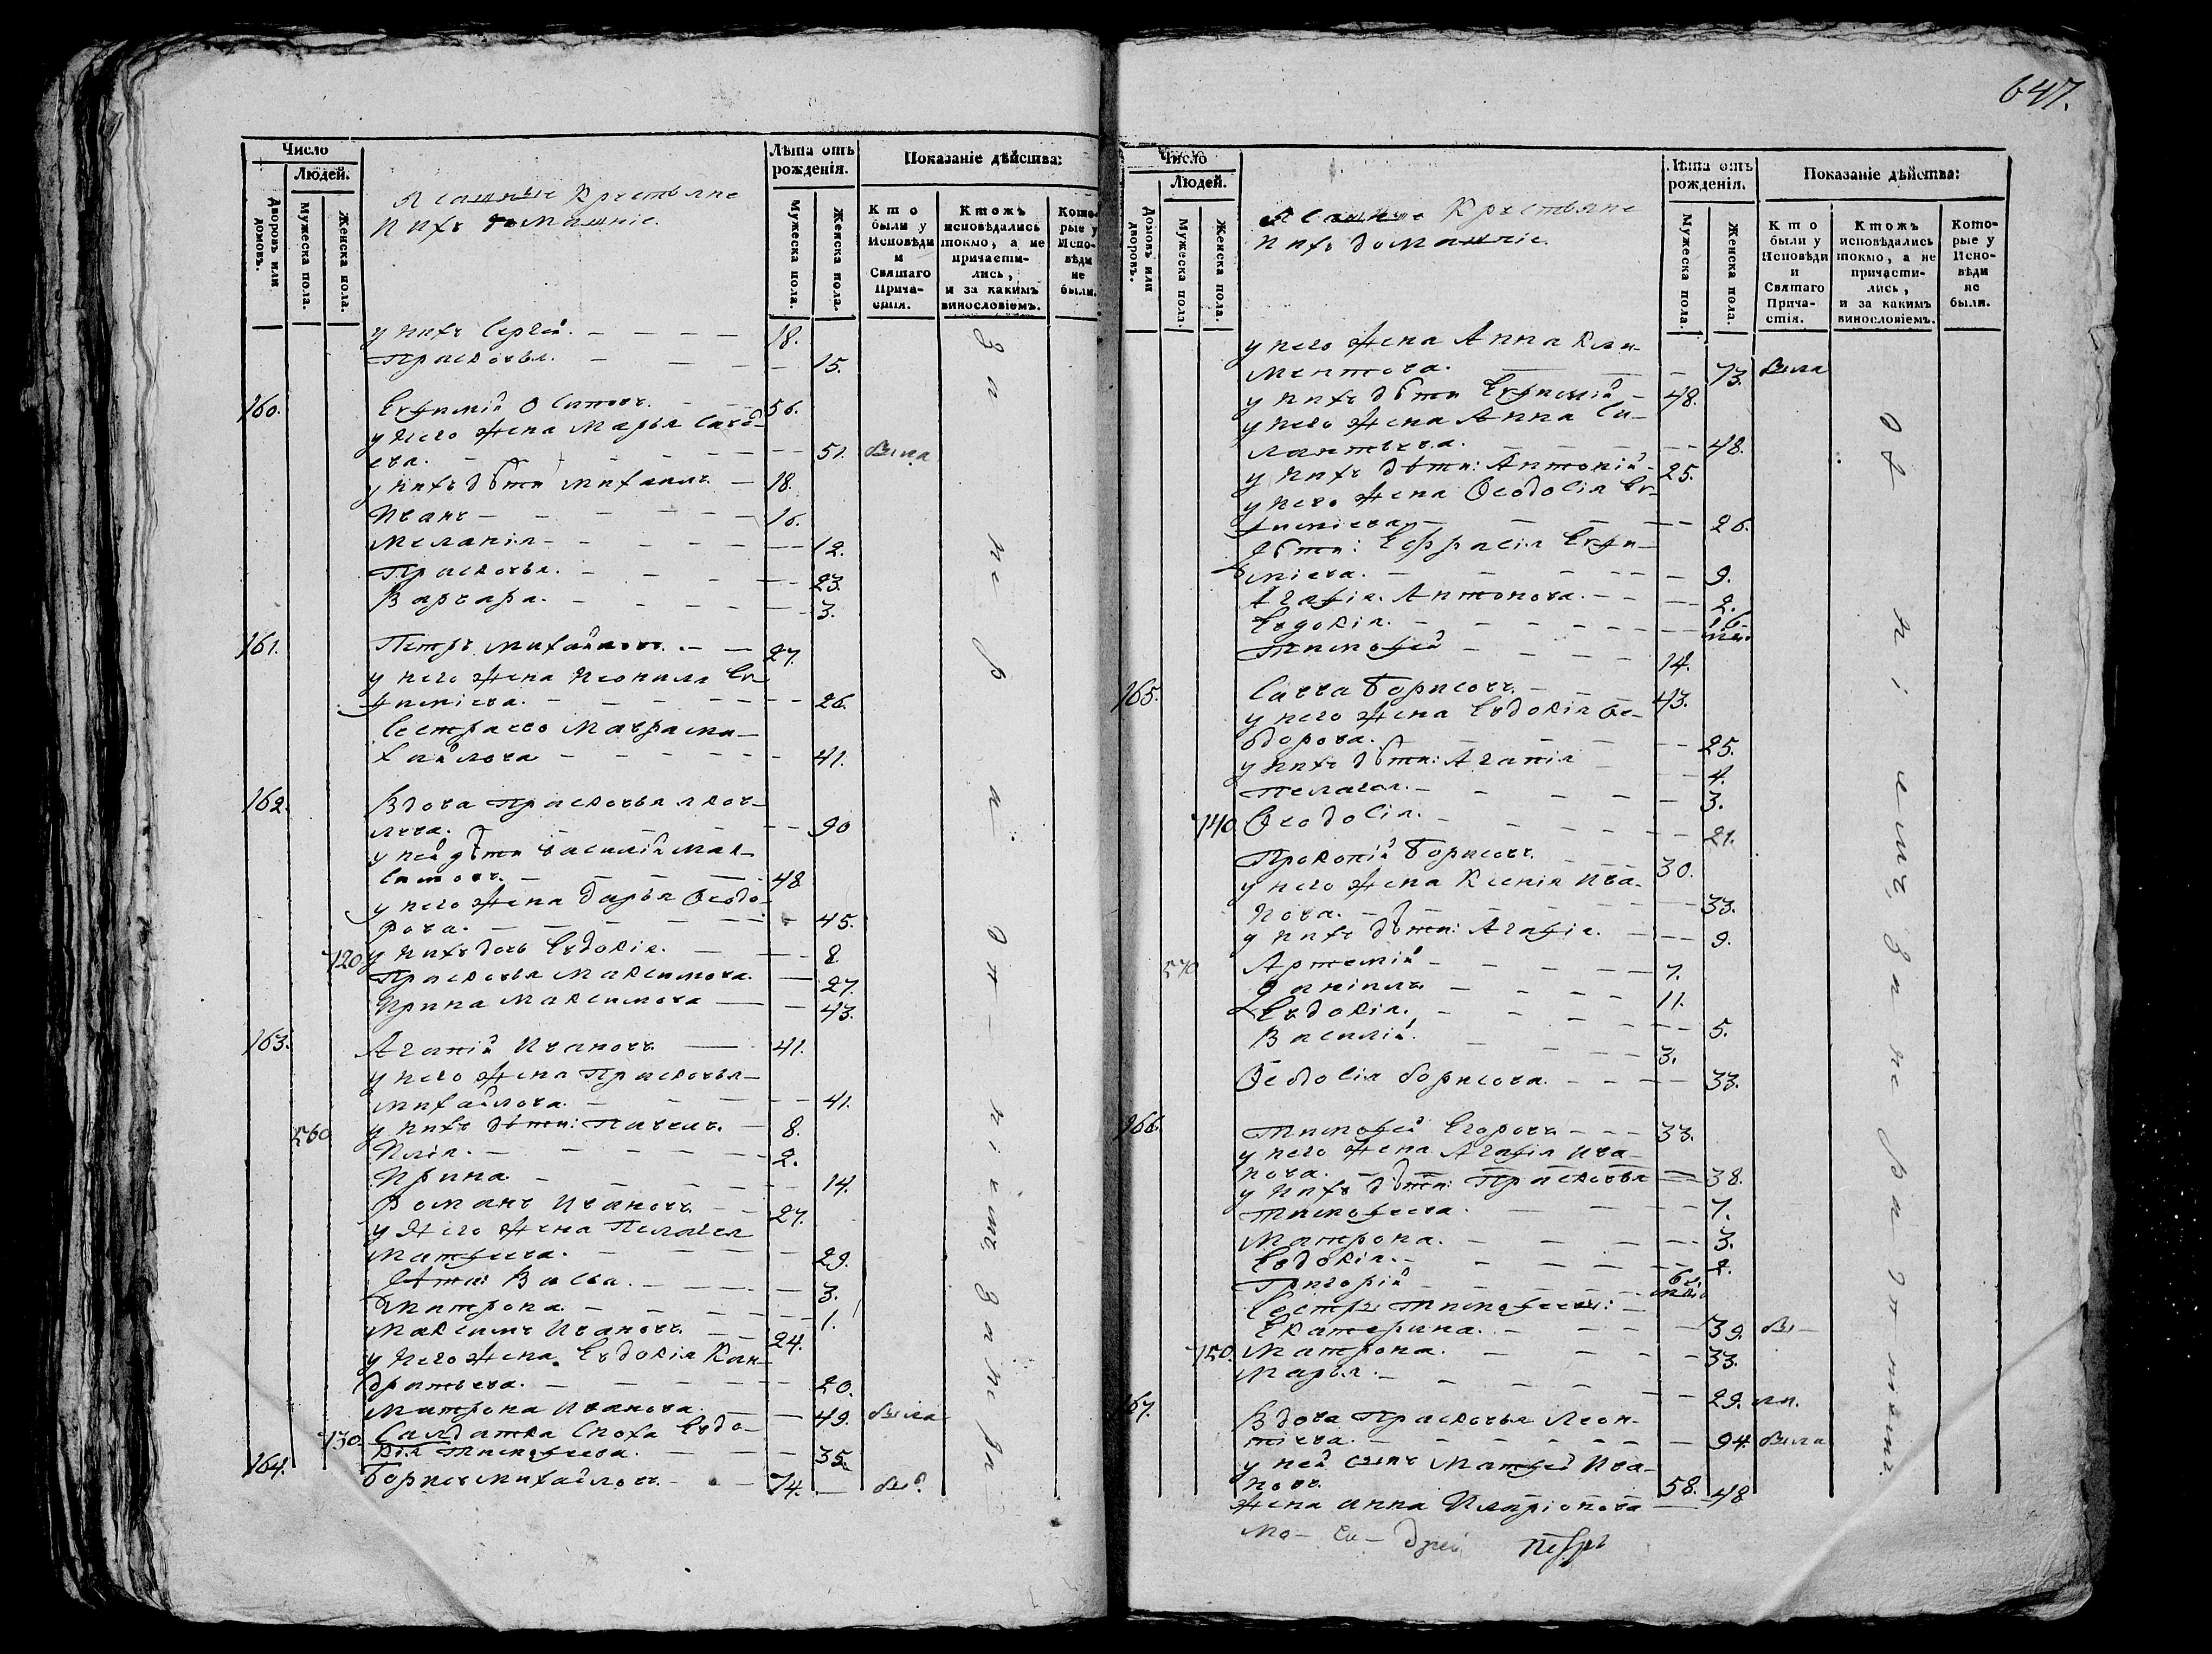 Число
Людей.
Дворовъ или домовъ.
Мужеска пола.
Женска пола.
Ясашные Крестьяне
и ихъ домашніе.
Лѣта отъ рожденія.
Мужеска пола.
Женска пола.
Показаніе дѣйства:
Кто были у Исповѣди и Святаго Причастія.
Ктожъ исповѣдались токмо, а не причастились, и за какимъ винословіемъ.
Которые у Исповѣди не были.
у нихъ Сергей. 18.
Прасковья. 15.
160. Евфимій Осиповъ. 56.
у него жена Марья Савѣ-
ева. 51. была
у нихъ дѣти Михаилъ 18.
Иванъ 16.
Меланія 12.
Прасковья. 23.
Варвара. 3.
161. Петръ Михайловъ. 27.
у него жена Неонила Ев-
фиміева. 26.
Сестра его Мавра Ми-
хайлова 41.
162. Вдова Прасковья Яков-
лева. 90
у ней дѣти Василій Мак-
симовъ. 48
у него жена Дарья Ѳеодо-
рова. 45.
720 у нихъ дочь Евдокія. 8.
Прасковья Максимова. 27.
Ирина Максимова 43.
163. Агапій Ивановъ 41.
у него жена Прасковья
Михайлова. 41.
560 у нихъ дѣти: Павелъ. 8.
Илія. 2.
Ирина 14.
Романъ Ивановъ. 27.
у него жена Пелагея
Матфеева. 29.
Дѣти: Васса. 3.
Матрона. 1.
Максимъ Ивановъ. 24.
у него жена Евдокія Кан-
дратьева. 20.
Матрона Иванова. 49. была
730. Салдатка Сноха Евдо-
кія Тимофеева. 35.
164. Борисъ Михайловъ. 74. бы
за не ра дѣ ніемъ за не ра
647.
Число
Людей.
Домовъ или дворовъ.
Мужеска пола.
Женска пола.
Ясашные Крестьяне
и ихъ домашніе.
Лѣта отъ рожденія.
Мужеска пола.
Женска пола.
Показаніе дѣйства:
Кто были у Исповѣди и Святаго Причастія.
Ктожъ исповѣдались токмо, а не причастились, и за какимъ винословіемъ.
Которые у Исповѣди не были.
у него жена Анна Кли-
ментова. 73. была
у нихъ дѣти Евфимій 48.
у него жена Анна Си-
лантьева. 48.
у нихъ дѣти: Антоній 25.
у него жена Ѳеодосія Ев-
фиміева 26.
дѣти: Евфрасія Евфи-
міева. 9.
Агафія Антонова. 2.
Евдокія.
Тимофей 14.
165. Савва Борисовъ. 43.
у него жена Евдокія Ѳе-
одорова. 25.
у нихъ дѣти: Агапія 4.
Пелагея. 3.
740 Ѳеодосія. 21.
Прокопій Борисовъ. 30.
у него жена Ксенія Ива-
нова. 33.
у нихъ дѣти: Агафіе. 9.
570 Артемій 7.
Даніилъ 11.
Евдокія. 5.
Василій. 3.
Ѳеодосія Борисова. 33.
166. Тимофей Егоровъ 33.
у него жена Агафія Ива-
нова. 38.
у нихъ дѣти: Прасковья
Тимофеева. 7.
Матрона. 3.
Евдокія. 2.
Григорій
Сестры Тимофеевы:
Екатерина. 39. бы-
750. Матрона. 33.
Марья. 29. ли.
167. Вдова Прасковья Леон-
тіева. 94. была
у ней сынъ Матфей Ива-
новъ. 58.
жена Анна Иларіонова 48
дѣ ніемъ за не ра дѣ ніемъ.
Петръ